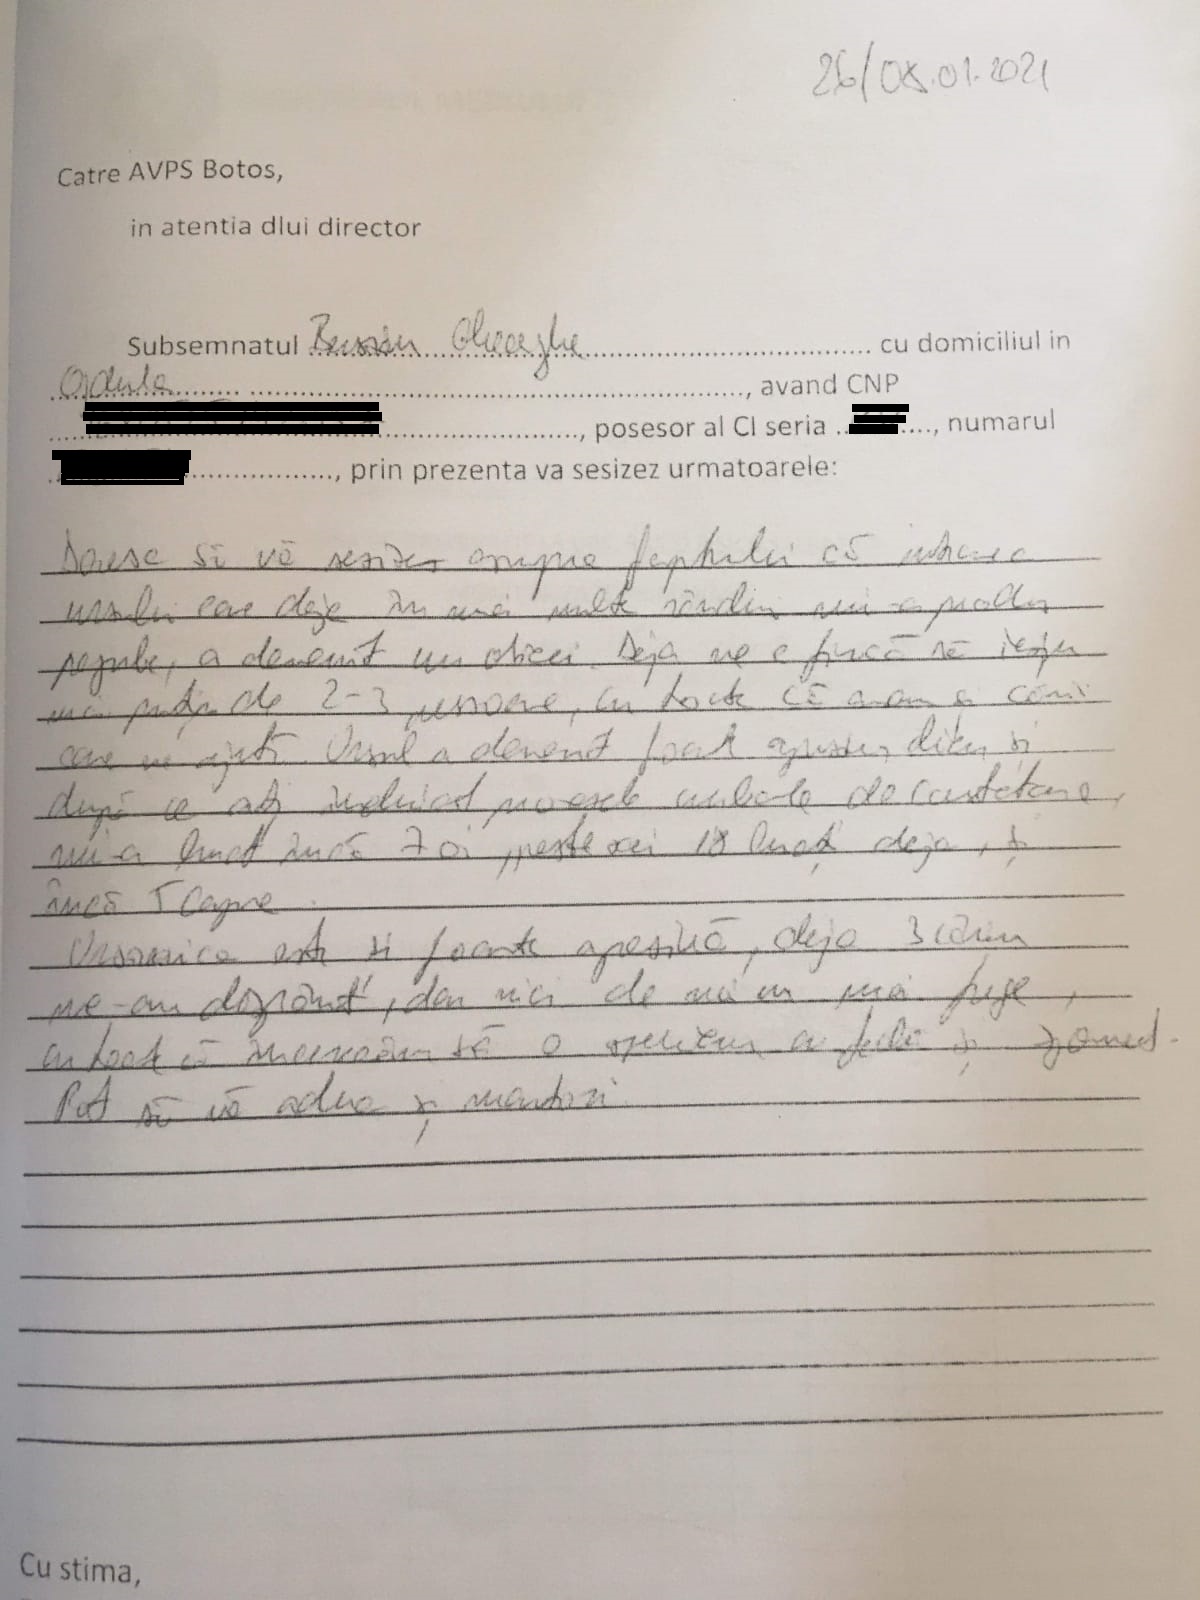 26/08.01.2021
Catre AVPS Botos,
in atentia dlui director
Subsemnatul Gheorghe cu domiciliul in
Ojdula, avand CNP
, posesor al CI seria , numarul
, prin prezenta va sesizez urmatoarele:
Doresc să vă sesizez asupra faptului că intrarea
ursului care deja în mai multe rânduri mi-a produs
pagube, a devenit un obicei. Deja ne e frică să ieșim
mai puțin de 2-3 persoane, cu toate că avem și câini
care ne ajută. Ursul a devenit foarte agresiv, și
după ce ați de cercetare,
mi-a luat încă 7 oi, peste cei 18 luați deja, și
încă 5 capre.
Ursoaica este și foarte agresivă, deja 3 câini
ne-au, dar nici de noi nu mai fuge,
cu toate că încercăm să o speriem cu și zgomot.
Pot să vă aduc și martori.
Cu stima,